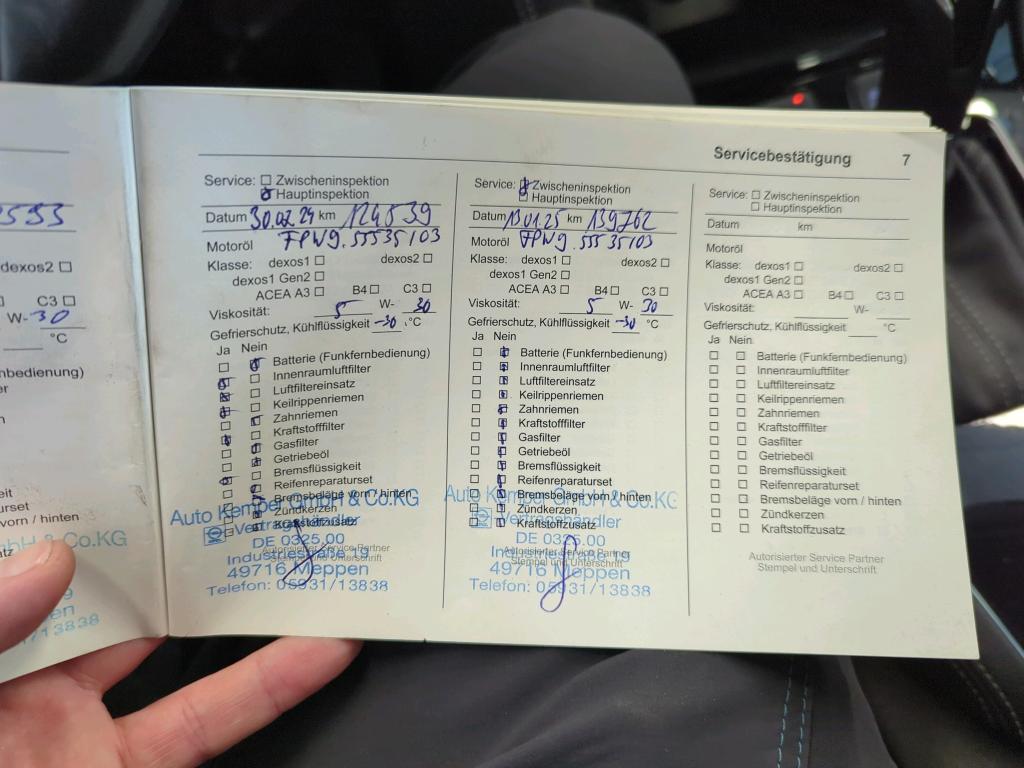 Servicebestätigung 7
dexos2 ☐
C3 ☐
W-30
°C
vorn / hinten
Co.KG
13838
Service: ☐ Zwischeninspektion
☒ Hauptinspektion
Datum km 124539
Motoröl FPW9.55535103
Klasse: dexos1 ☐ dexos2 ☐
dexos1 Gen2 ☐
ACEA A3 ☐ B4 ☐ C3 ☐
Viskosität: 5 W- 30
Gefrierschutz, Kühlflüssigkeit -30 °C
Ja Nein
Batterie (Funkfernbedienung)
Innenraumluftfilter
Luftfiltereinsatz
Keilrippenriemen
Zahnriemen
Kraftstofffilter
Gasfilter
Getriebeöl
Bremsflüssigkeit
Reifenreparaturset
Bremsbeläge vorn / hinten
Zündkerzen
Kraftstoffzusatz
Autorisierter Service Partner
Stempel und Unterschrift
Auto Kemper GmbH & Co.KG
Vertragshändler
DE 0325.00
Industriestraße 19
49716 Meppen
Telefon: 05931/13838
Service: ☒ Zwischeninspektion
☐ Hauptinspektion
Datum 13.01.25 km 139762
Motoröl FPW9.55535103
Klasse: dexos1 ☐ dexos2 ☐
dexos1 Gen2 ☐
ACEA A3 ☐ B4 ☐ C3 ☐
Viskosität: 5 W- 30
Gefrierschutz, Kühlflüssigkeit -30 °C
Ja Nein
Batterie (Funkfernbedienung)
Innenraumluftfilter
Luftfiltereinsatz
Keilrippenriemen
Zahnriemen
Kraftstofffilter
Gasfilter
Getriebeöl
Bremsflüssigkeit
Reifenreparaturset
Bremsbeläge vorn / hinten
Zündkerzen
Kraftstoffzusatz
Autorisierter Service Partner
Stempel und Unterschrift
Auto Kemper GmbH & Co.KG
Vertragshändler
DE 0325.00
Industriestraße 19
49716 Meppen
Telefon: 05931/13838
Service: ☐ Zwischeninspektion
☐ Hauptinspektion
Datum km
Motoröl
Klasse: dexos1 ☐ dexos2 ☐
dexos1 Gen2 ☐
ACEA A3 ☐ B4 ☐ C3 ☐
Viskosität: W-
Gefrierschutz, Kühlflüssigkeit °C
Ja Nein
☐ ☐ Batterie (Funkfernbedienung)
☐ ☐ Innenraumluftfilter
☐ ☐ Luftfiltereinsatz
☐ ☐ Keilrippenriemen
☐ ☐ Zahnriemen
☐ ☐ Kraftstofffilter
☐ ☐ Gasfilter
☐ ☐ Getriebeöl
☐ ☐ Bremsflüssigkeit
☐ ☐ Reifenreparaturset
☐ ☐ Bremsbeläge vorn / hinten
☐ ☐ Zündkerzen
☐ ☐ Kraftstoffzusatz
Autorisierter Service Partner
Stempel und Unterschrift